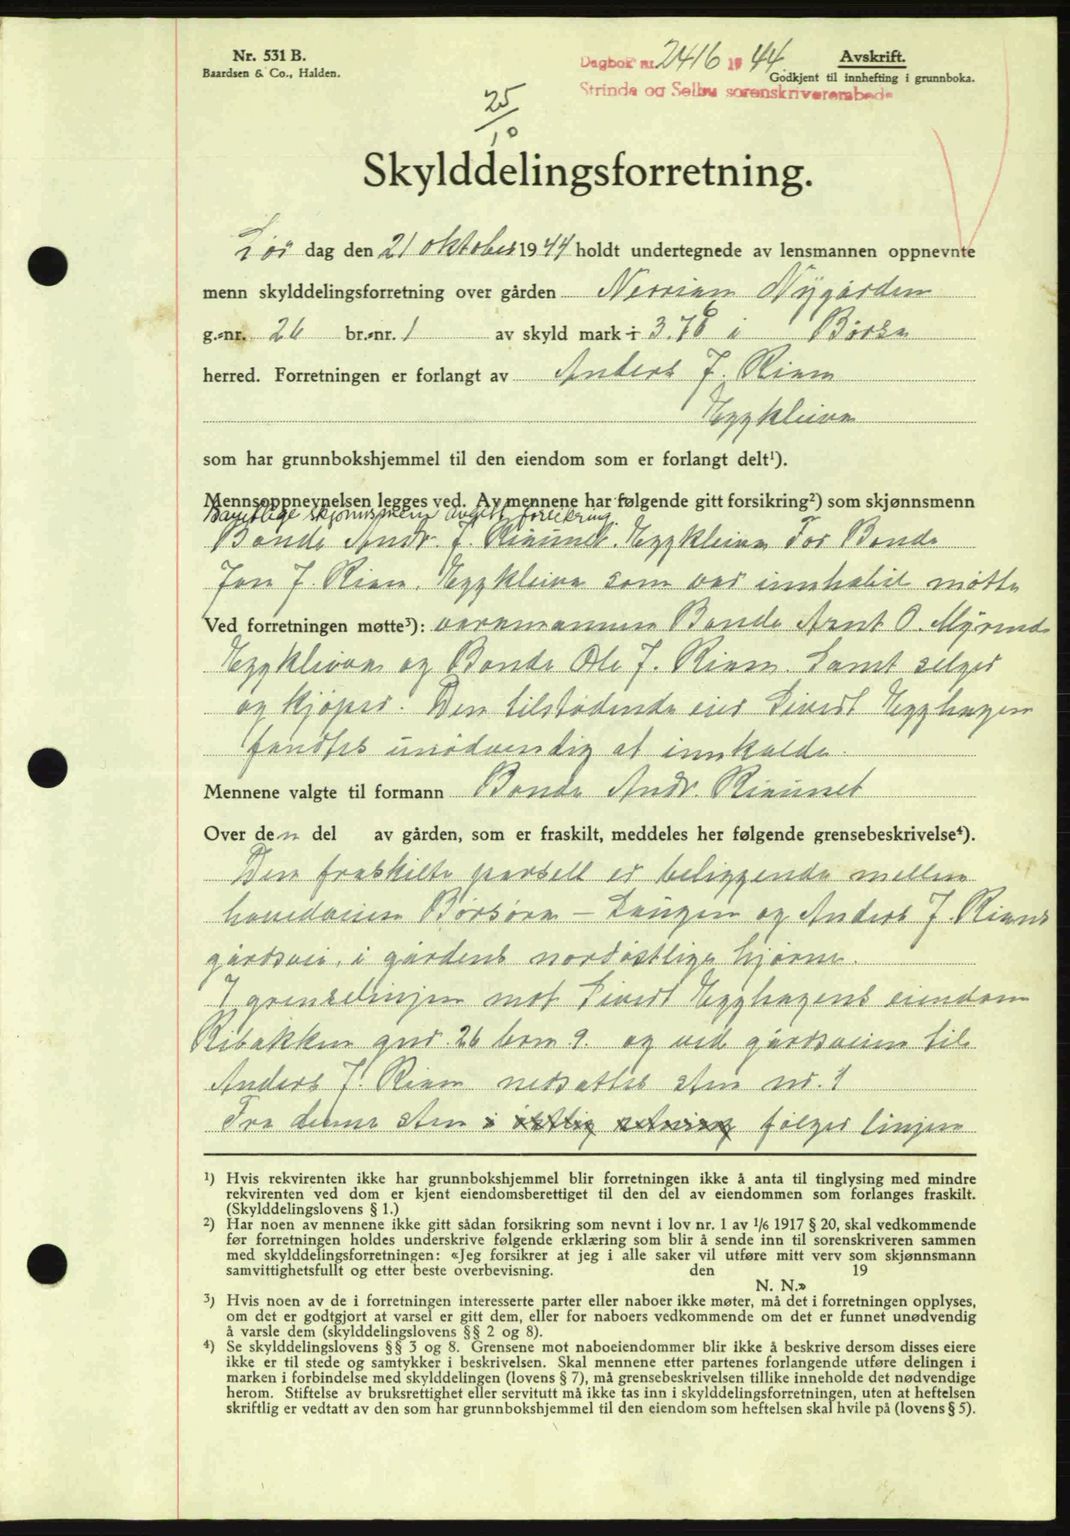 Nr. 531 B.
Baardsen & Co., Halden.
Dagbok nr. 2416 19 44
Avskrift.
Godkjent til innhefting i grunnboka.
Strinda og Selbu sorenskriverembede
25/10
Skylddelingsforretning.
Lør dag den 21 oktober 1944 holdt undertegnede av lensmannen oppnevnte
menn skylddelingsforretning over gården Nerriam Nygården
g.-nr. 26 br.-nr. 1 av skyld mark 3.76 i Børsa
herred. Forretningen er forlangt av Anders J. Riam
Eggkleiva
som har grunnbokshjemmel til den eiendom som er forlangt delt¹).
Mennsoppnevnelsen legges ved. Av mennene har følgende gitt forsikring²) som skjønnsmenn
Samtlige skjønnsmenn avgitt forsikring.
Bonde Andr. J. Riaunet. Eggkleiva For Bonde
Jon J. Riam. Eggkleiva som var innhabil møtte
Ved forretningen møtte³): varamannen Bonde Arnt O. Myrmo
Eggkleiva og Bonde Ole J. Riam. Samt selger
og kjøper. Den tilstødende eier Sivert Egghagen
fandtes unødvendig at innkalde.
Mennene valgte til formann Bonde Andr. Riaunet
Over den del av gården, som er fraskilt, meddeles her følgende grensebeskrivelse⁴).
Den fraskilte parsell er beliggende mellem
hovedveien Børsøra - Laugen og Anders J. Riams
gårdsvei, i gårdens nordøstlige hjørne.
I grenselinjen mot Sivert Egghagens eiendom
Ribakken gnr. 26 brn 9. og ved gårdsveien til
Anders J. Riam nedsattes sten nr. 1
Fra denne sten i østlig retning følger linjen
¹) Hvis rekvirenten ikke har grunnbokshjemmel blir forretningen ikke å anta til tinglysing med mindre
rekvirenten ved dom er kjent eiendomsberettiget til den del av eiendommen som forlanges fraskilt.
(Skylddelingslovens § 1.)
²) Har noen av mennene ikke gitt sådan forsikring som nevnt i lov nr. 1 av 1/6 1917 § 20, skal vedkommende
før forretningen holdes underskrive følgende erklæring som blir å sende inn til sorenskriveren sammen
med skylddelingsforretningen: «Jeg forsikrer at jeg i alle saker vil utføre mitt verv som skjønnsmann
samvittighetsfullt og etter beste overbevisning. den 19
N. N.»
³) Hvis noen av de i forretningen interesserte parter eller naboer ikke møter, må det i forretningen opplyses,
om det er godtgjort at varsel er gitt dem, eller for naboers vedkommende om det er funnet unødvendig
å varsle dem (skylddelingslovens §§ 2 og 8).
⁴) Se skylddelingslovens §§ 3 og 8. Grensene mot naboeiendommer blir ikke å beskrive dersom disses eiere
ikke er til stede og samtykker i beskrivelsen. Skal mennene etter partenes forlangende utføre delingen i
marken i forbindelse med skylddelingen (lovens § 7), må grensebeskrivelsen tillike inneholde det nødvendige
herom. Stiftelse av bruksrettighet eller servitutt må ikke tas inn i skylddelingsforretningen, uten at heftelsen
skriftlig er vedtatt av den som har grunnbokshjemmel til den eiendom som heftelsen skal hvile på (lovens § 5).